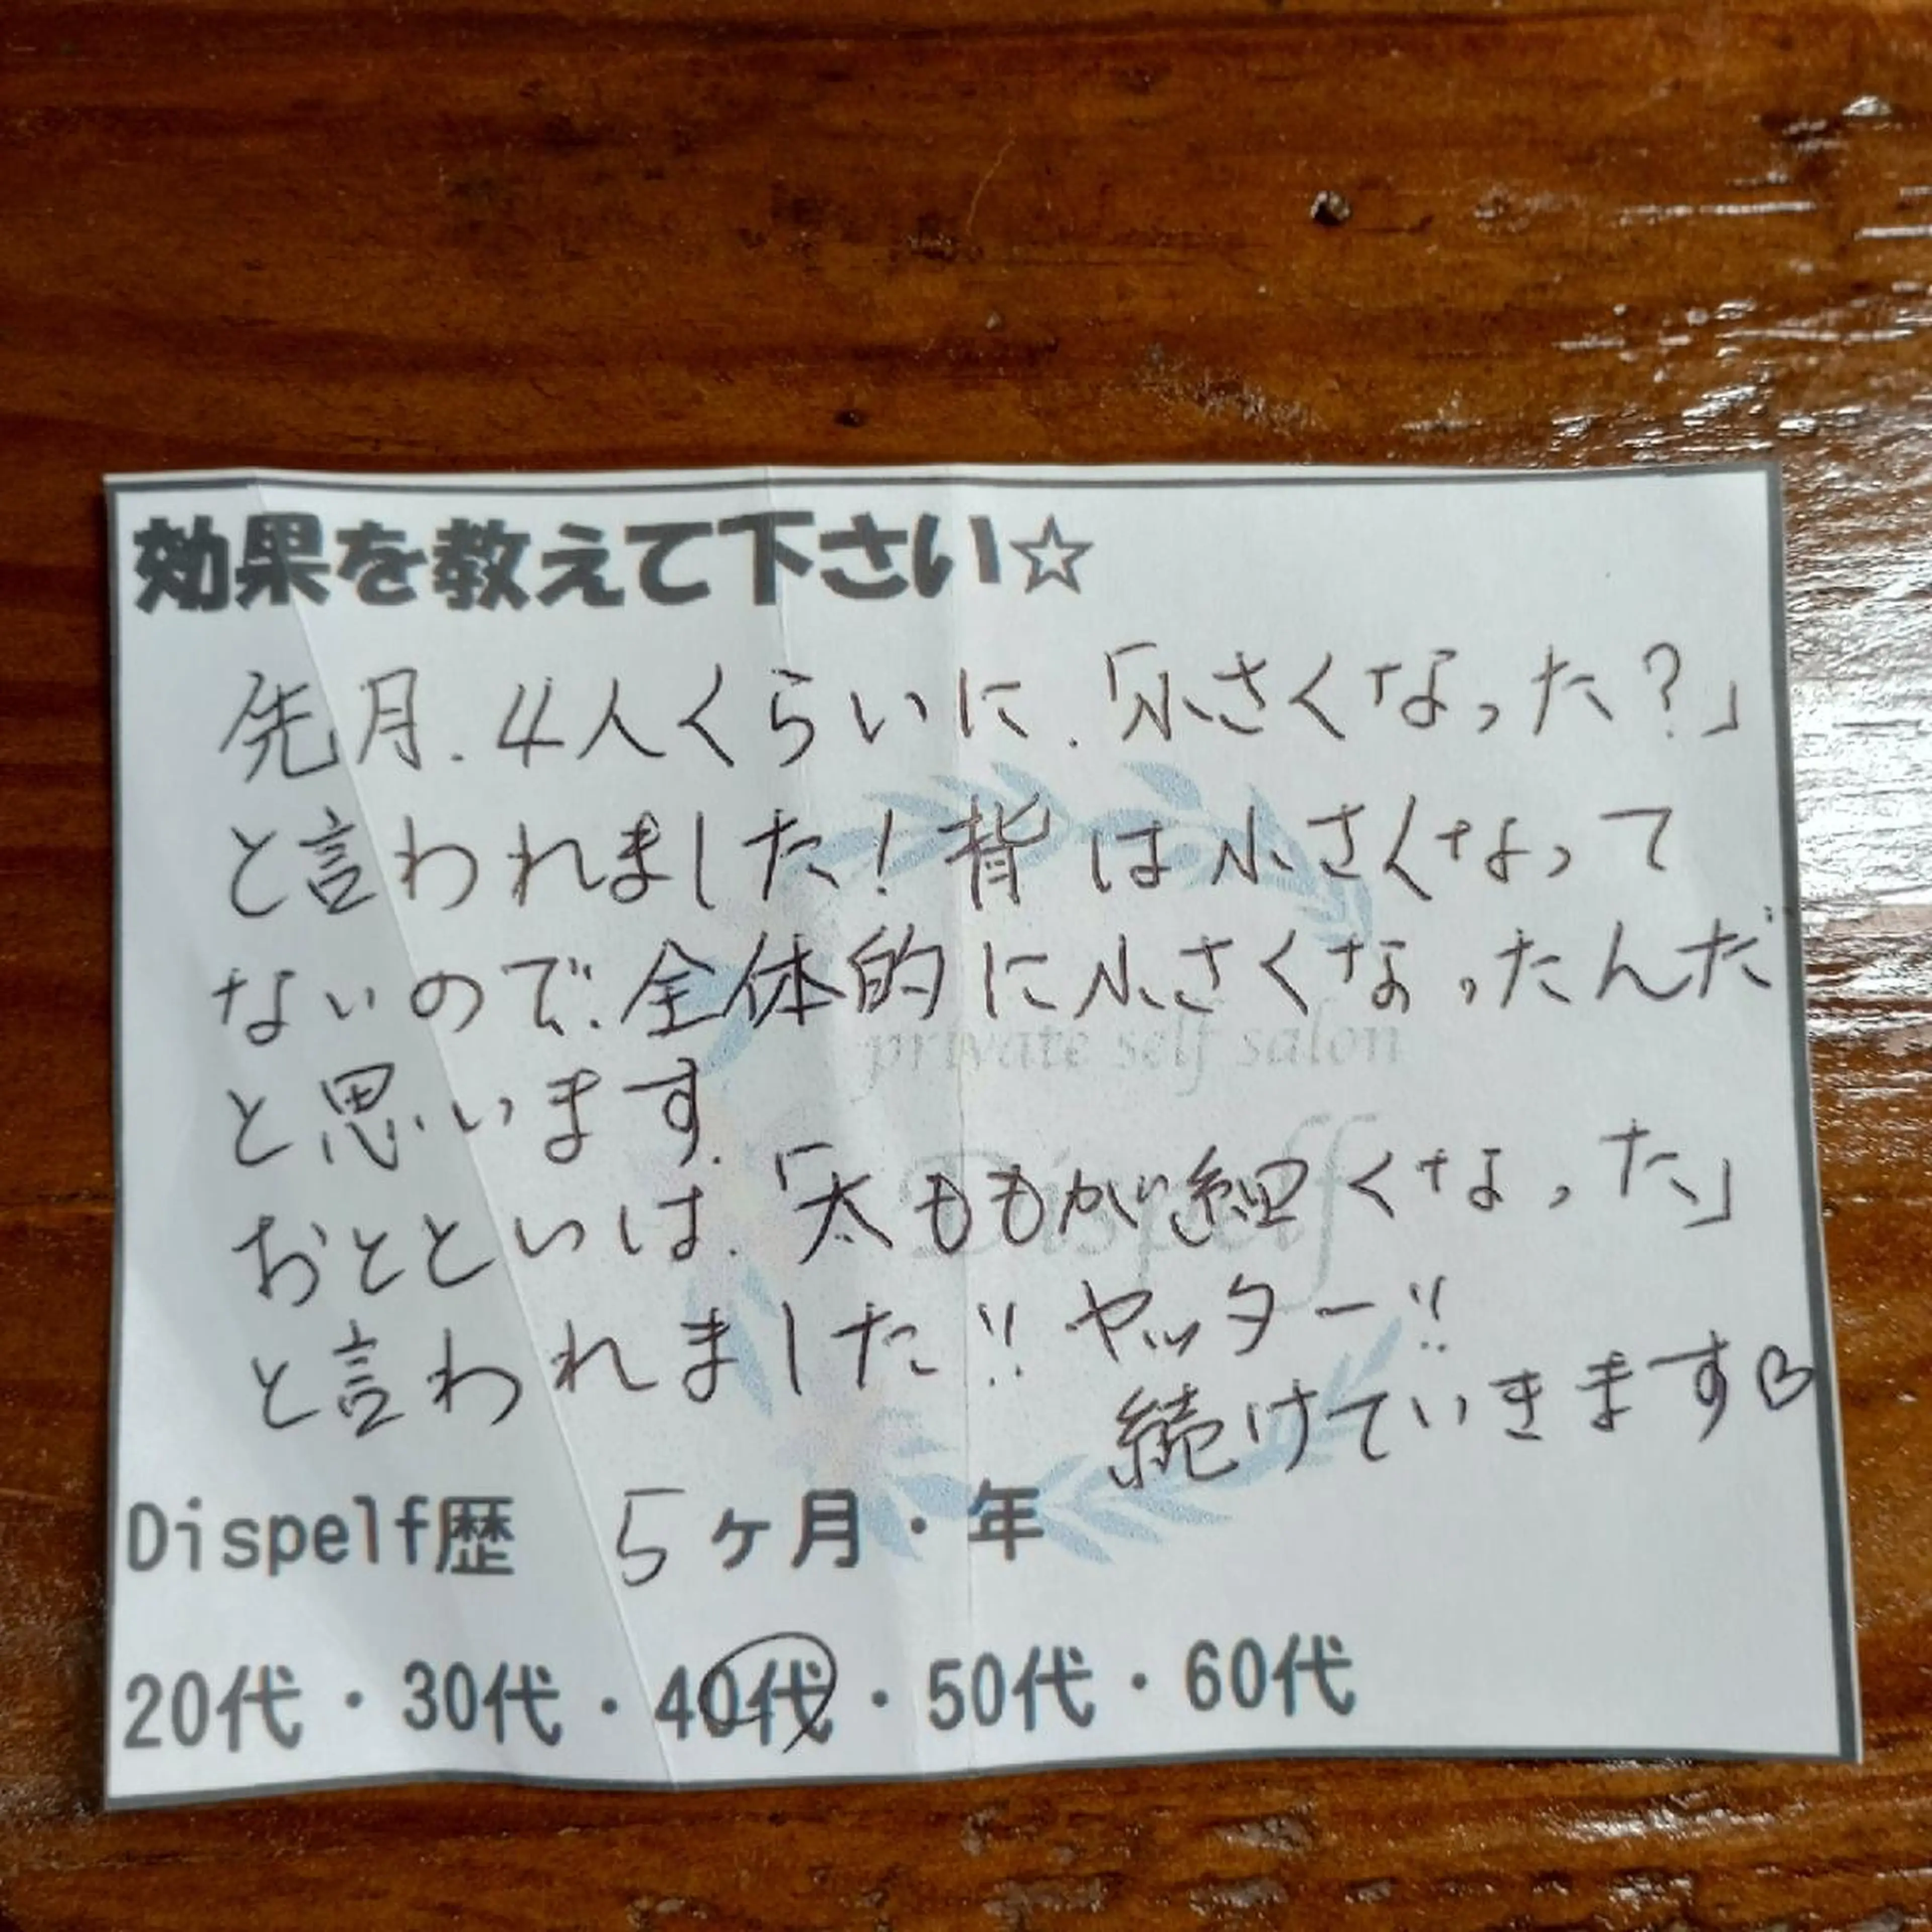 効果を教えて下さい☆
先月、4人くらいに、「小さくなった？」
と言われました！背は小さくなって
ないので、全体的に小さくなったんだ
と思います。
おとといは、「太ももが細くなった」
と言われました!! ヤッター!!
続けていきます♡
private self salon
Dispelf
Dispelf歴 5ヶ月・年
20代・30代・40代・50代・60代